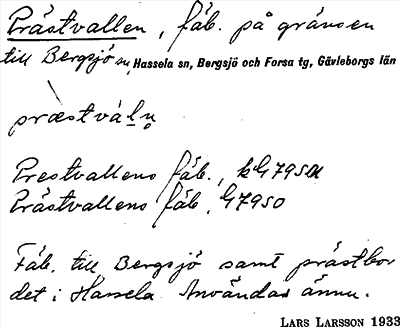 Prästvallen, fäb. på gränsen
till Bergsjö sn, Hassela sn, Bergsjö och Forsa tg, Gävleborgs län
præstválṇ
Prestvallens fäb., kG795öl
Prästvallens fäb. G7950
Fäb. till Bergsjö samt prästbor
det i Hassela. Användas ännu.
LARS LARSSON 1933